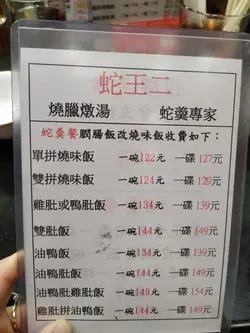 蛇王二
燒臘燉湯 蛇羹專家
蛇羹餐膶腸飯改燒味飯收費如下:
單拼燒味飯 一碗122元 一碟127元
雙拼燒味飯 一碗124元 一碟129元
雞髀或鴨髀飯 一碗134元 一碟139元
雙髀飯 一碗144元 一碟149元
油鴨飯 一碗134元 一碟139元
油鴨髀飯 一碗144元 一碟149元
油鴨髀雞髀飯 一碗149元 一碟154元
雞髀拼油鴨飯 一碗144元 一碟149元